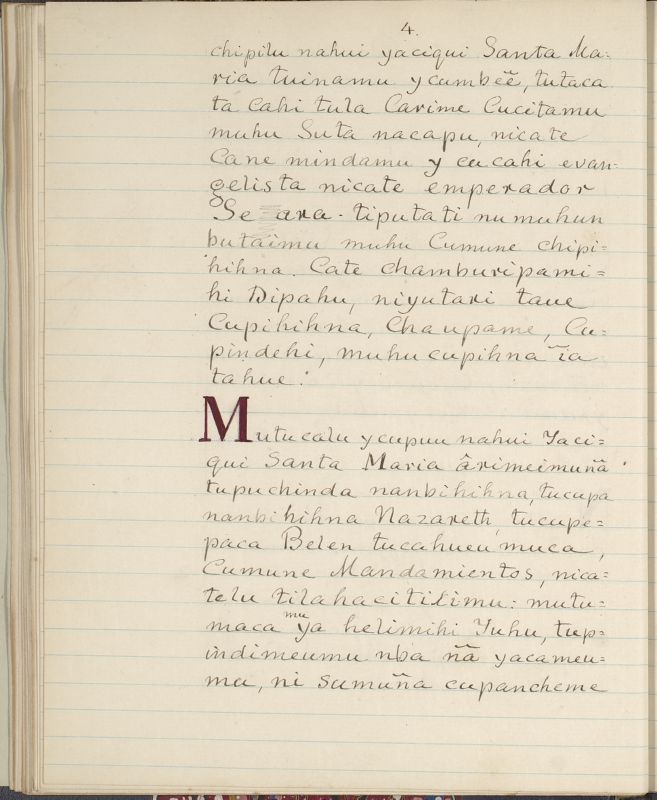 4.
chipilu nahui yaciqui Santa Ma=
ria tuinamu ycumbeẽ, tutaca
ta Cahi tula Carime Cucitamu
muhu Suta nacapu, nicate
Cane mindamu y cucahi evan=
gelista nicate emperador
Se ara. tiputati numuhun
butaimu muhu Cumune chipi=
hihna. Cate chamburipami=
hi Dipahu, niyutari taue
Cupihihna, Chaupame, Cu=
pindehi, muhu cupihna ĩa
tahue.
Mutucalu ycupuu nahui Yaci=
qui Santa Maria ârimeimuña
tupuchinda nanbihihna, tucupa
nanbihihna Nazareth, tucupe=
paca Belen tucahueu muca,
Cumune Mandamientos, nica=
telu tilahacitilimu: mutu=
maca mu ya helimihi Yuhu, tup=
indimeumu nba ña yacameu=
mu, ni sumuña cupancheme